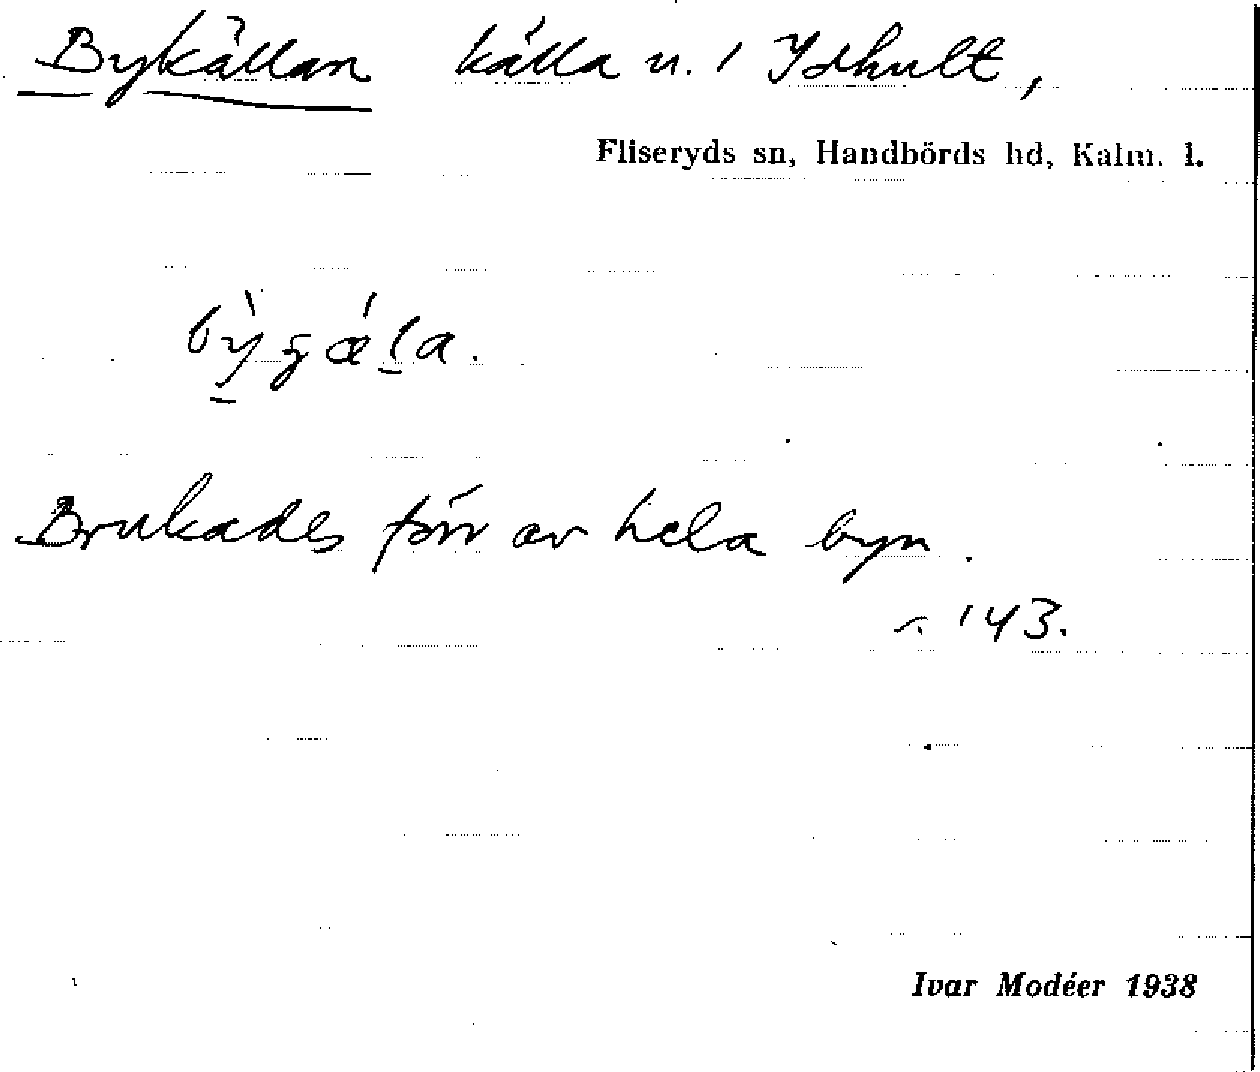 Bykällan källa n. 1 Idhult,
Fliseryds sn, Handbörds hd, Kalm. l.
Brukades förr av hela byn.
143.
Ivar Modéer 1938